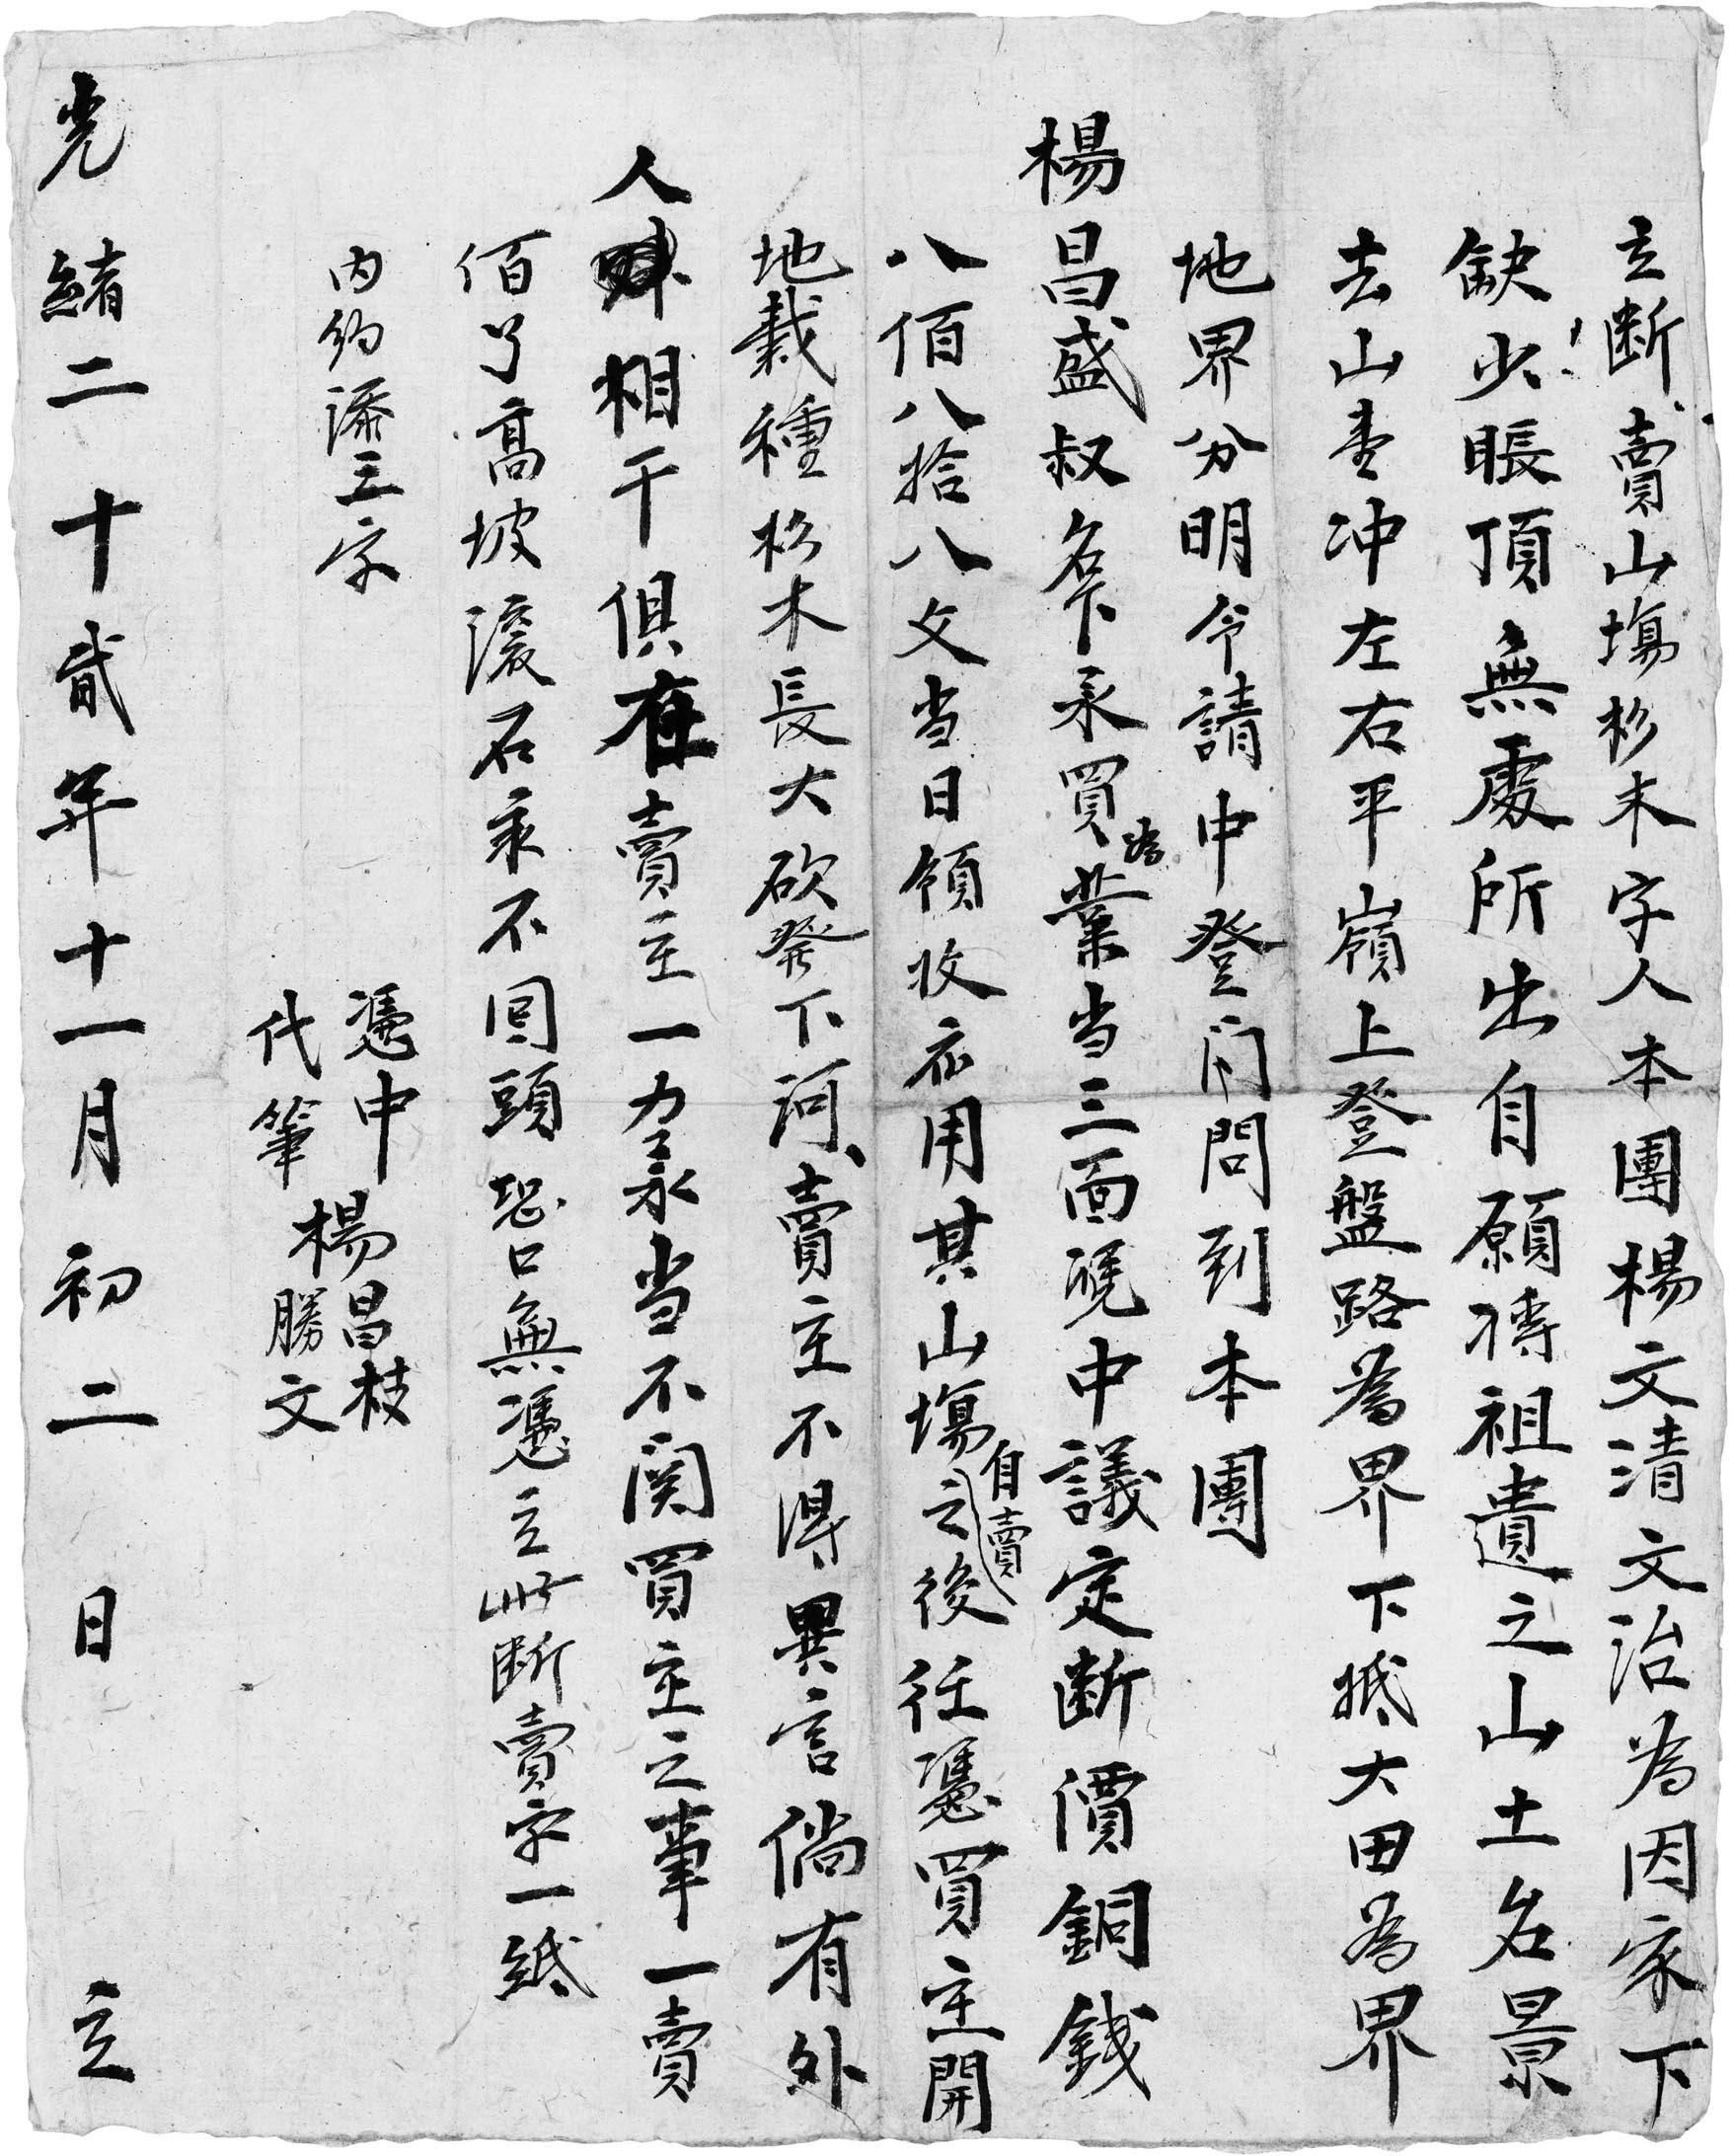 立断賣山塲杉木字人本團楊文清文治為因家下
缺少賬頂無處所出自願將祖遺之山土名景
去山妻冲左右平嶺上登盤路為界下抵大田為界
地界分明今請中登门問到本團
楊昌盛叔名下承買為業当三面凴中議定断價銅錢
八佰八拾八文当日領收応用其山塲自賣之後任憑買主開
地栽種杉木長大砍発下河賣主不得異言倘有外
人相干俱在賣主一力承当不関買主之事一賣
佰了高坡滾石永不回頭恐口無憑立此断賣字一紙
内約添三字
憑中 楊昌枝
代筆 勝文
光緒二十貳年十一月初二日 立